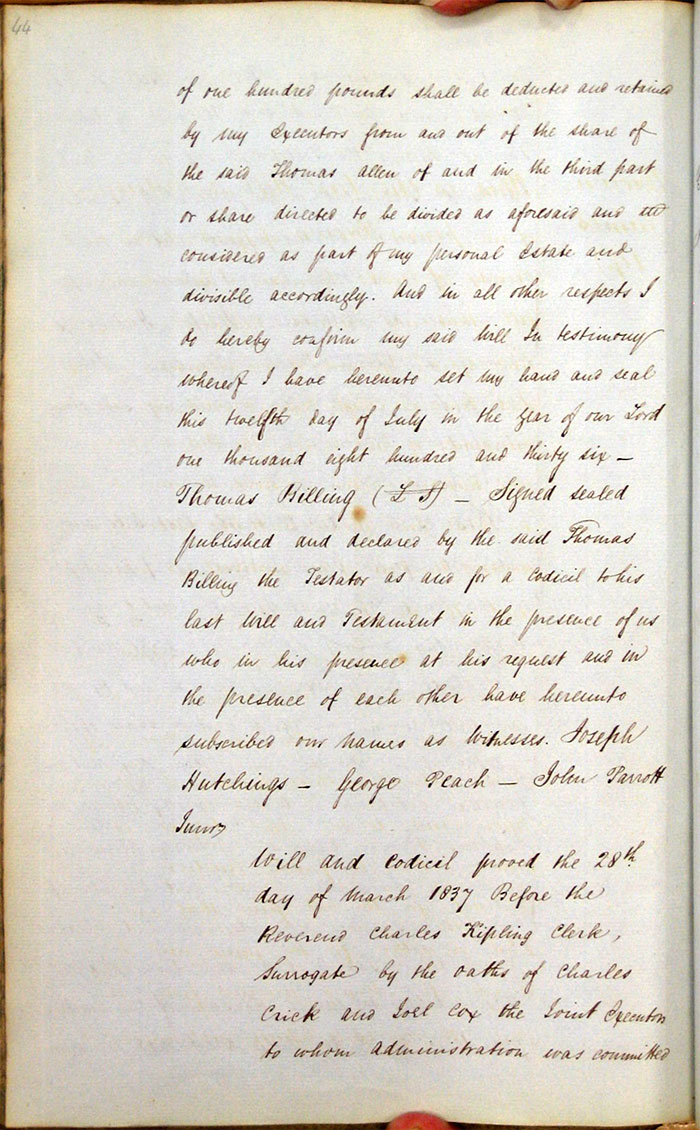 44
of one hundred pounds shall be deducted and retained
by my Executors from and out of the share of
the said Thomas allen of and in the third part
or share directed to be divided as aforesaid and
considered as part of my personal Estate and
divisible accordingly. And in all other respects I
do hereby confirm my said Will In testimony
whereof I have hereunto set my hand and seal
this twelfth day of July in the year of our Lord
one thousand eight hundred and thirty six —
Thomas Billing (L S) — Signed sealed
published and declared by the said Thomas
Billing the Testator as and for a Codicil to his
last Will and Testament in the presence of us
who in his presence at his request and in
the presence of each other have hereunto
subscribed our names as Witnesses. Joseph
Hutchings — George Peach — John Parrott
Junr
Will and Codicil proved the 28th
day of March 1837 Before the
Reverend Charles Kipling Clerk,
Surrogate by the oaths of Charles
Crick and Joel Cox the Joint Executors
to whom administration was committed